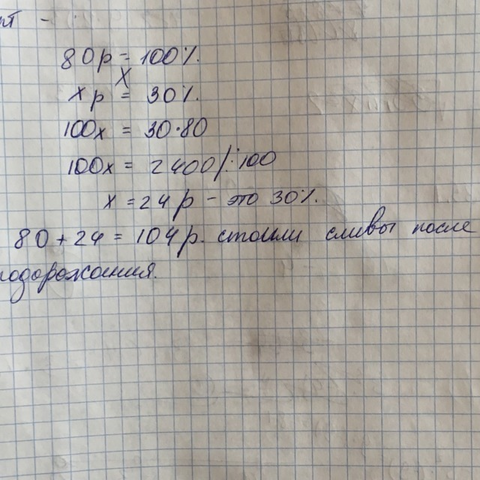 80р = 100%.
х
хр = 30%.
100х = 30·80
100х = 2400/:100
х = 24р - это 30%.
80+24 = 104р. стоили сливы после
подорожания.